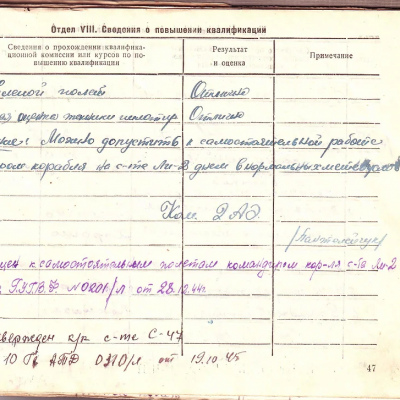 Отдел VIII. Сведения о повышении квалификации
Сведения о прохождении квалифика-
ционной комиссии или курсов по по-
вышению квалификации
Результат
и оценка
Примечание
полёт Отлично
оценка техники пилотир Отлично
Можно допустить к самостоятельной работе
корабля на с-те Ли-2 днем в нормальных
Ком. 2 АЭ
к самостоятельным полетам командиром кор-ля с-та Ли-2
ГУГВФ №020/л от 28.12.44г.
к/к с-та С-47
10 Гв АТД 0310/л от 19.10.45
47